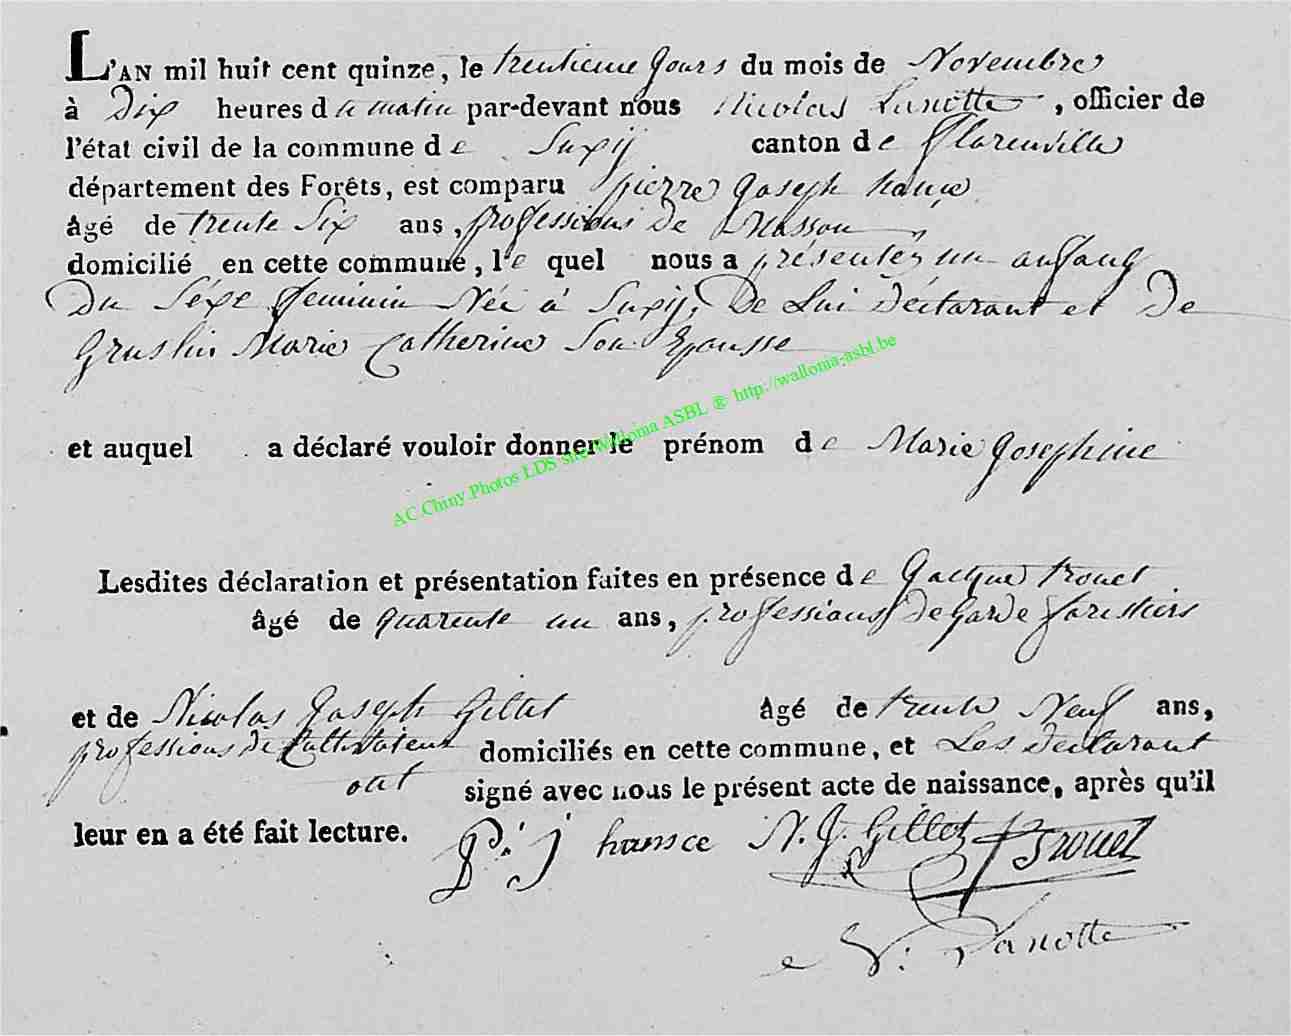 L'AN mil huit cent quinze, le trentieme Jours du mois de Novembre
à Dix heures de matin par-devant nous Nicolas Lanotte, officier de
l'état civil de la commune de Suxÿ canton de florenville
département des Forêts, est comparu pierre Joseph hansce
âgé de trente Six ans, professions de Masson
domicilié en cette commune, le quel nous a présentéz un anfang
Du Séxe feminin Née à Suxÿ, De Lui Déclarant et De
Gruslin Marie Catherine Son Epousse
et auquel a déclaré vouloir donner le prénom de Marie Josephine
AC.Chiny.Photos LDS site Wallonia ASBL ® http://wallonia-asbl.be
Lesdites déclaration et présentation faites en présence de Jacque trouet
âgé de quarente un ans, professions De Garde forestiers
et de Nicolas Joseph Gillet âgé de trente Neuf ans,
professions de Cultivateur domiciliés en cette commune, et Les Declarant
ont signé avec nous le présent acte de naissance, après qu'il
leur en a été fait lecture. P: J hansce N. J. Gillet Trouet
N: Lanotte